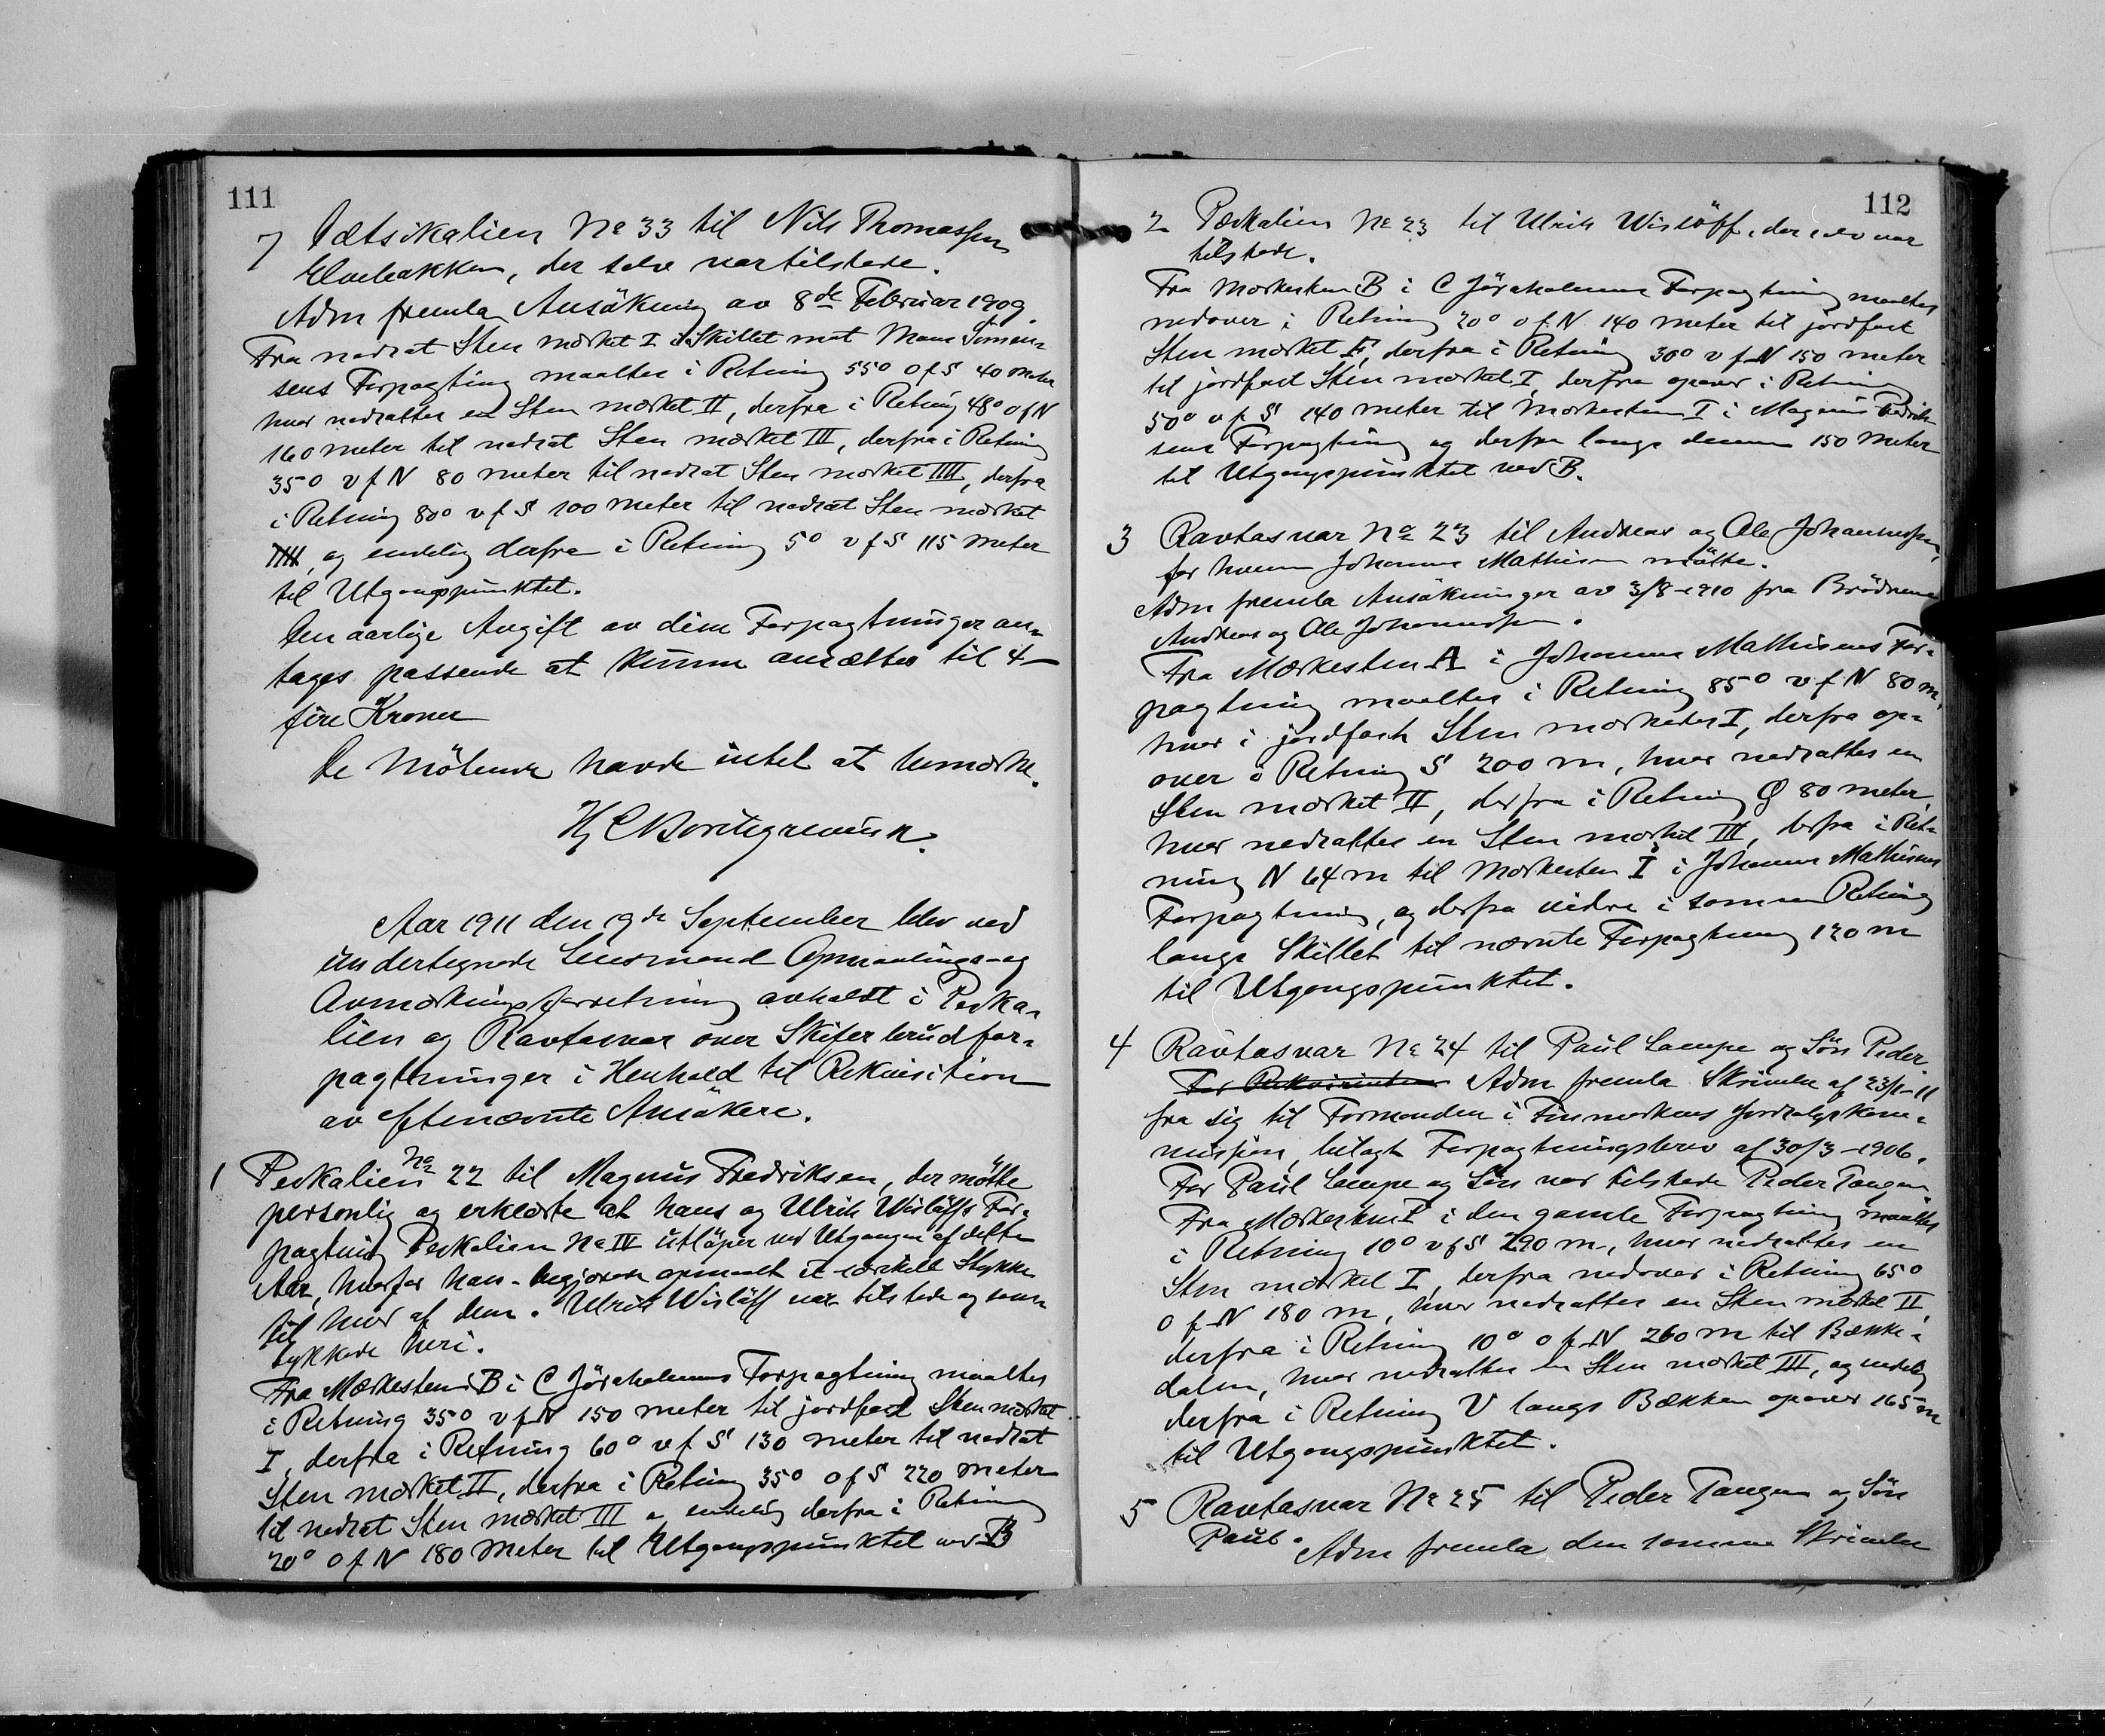 111
7 Vætsikalien No 33 til Nils Thomassen
Elvebakken, der selv var tilstede.
Adm fremla Ansökning av 8de Februar 1909.
Fra nedsat Sten mærket I i Skillet mot Mons Simon=
sens Forpagting maaltes i Retning 55° o f S 40 meter
hvor nedsattes en Sten mærket II, derfra i Retning 48° o f N
160 meter til nedsat Sten mærket III, derfra i Retning
35° v f N 80 meter til nedsat Sten mærket IIII, derfra
i Retning 80° v f S 100 meter til nedsat Sten mærket
IIIII, og endelig derfra i Retning 5° v f S 115 meter
til Utgangspunktet.
Den aarlige Avgift av disse Forpagtninger an=
tages passende at kunne ansættes til 4 —
fire Kroner
De Mötende havde intet at bemærke.
Hj C Borchgrevink.
Aar 1911 den 19de September blev ved
undertegnede Lensmand Opmaalings- og
Avmærkningsforretning avholdt i Peska=
lien og Ravtasvar over Skiferbrudfor=
pagtninger i Henhold til Rekvisition
av eftnævnte Ansökere.
1 Peskalien No 22 til Magnus Fredriksen, der mötte
personlig og erklærte at hans og Ulrik Wislöffs For=
pagtning Peskalien No IV utlöper ved Utgangen af dette
Aar, hvorfor han begjærede opmaalt et særskilt Stykke
til hver af dem. Ulrik Wislöff var tilstede og sam=
tykkede heri.
Fra Mærkesten B i C Jöraholmens Forpagtning maaltes
i Retning 35° v f N 150 meter til jordfast Sten mærket
I, derfra i Retning 60° v f S 130 meter til nedsat
Sten mærket II, derfra i Retning 35° o f S 220 meter
til nedsat Sten mærket III og endelig derfra i Retning
20° o f N 180 Meter til Utgangspunktet ved B
112
2 Peskalien No 23 til Ulrik Wislöff, der selv var
tilstede.
Fra Mærkesten B i C Jöraholmens Forpagtning maaltes
nedover i Retning 20° o f N 140 meter til jordfast
Sten mærket F, derfra i Retning 30° v f N 150 meter
til jordfast Sten mærket I, derfra opover i Retning
50° v f S 140 meter til Mærkesten I i Magnus Fredrik=
sens Forpagtning og derfra langs denne 150 Meter
til Utgangspunktet ved B.
3 Ravtasvar No 23 til Andreas og Ole Johannessen,
for hvem Johannes Mathisen mötte.
Adm fremla Ansökninger av 3/8-1910 fra Brödrene
Andreas og Ole Johannessen.
Fra Mærkesten A i Johannes Mathisens For=
pagtning maaltes i Retning 85° v f N 80 m,
hvor i jordfast Sten mærkedes I, derfra op=
over i Retning S 200 m, hvor nedsattes en
Sten mærket II, derfra i Retning Ø 80 meter,
hvor nedsattes en Sten mærket III, derfra i Ret=
ning N 64 m til Mærkesten I i Johannes Mathisens
Forpagtning, og derfra videre i samme Retning
langs Skillet til nævnte Forpagtning 120 m
til Utgangspunktet.
4 Ravtasvar No 24 til Paul Lampe og Sön Peder
For Rekvirenten Adm fremla Skrivelse af 23/1-11
fra sig til Formanden i Finmarkens Jordsalgskom=
mission, bilagt Forpagtningsbrev af 30/3-1906.
For Paul Lampe og Sön var tilstede Peder Tangen.
Fra Mærkesten I i den gamle Forpagtning maaltes
i Retning 10° v f S 290 m, hvor nedsattes en
Sten mærket I, derfra nedover i Retning 65°
o f N 180 m, hvor nedsattes en Sten mærket II
derfra i Retning 10° o f N 260 m til Bække=
dalen, hvor nedsattes en Sten mærket III, og endelig
derfra i Retning V langs Bækken opover 165 m
til Utgangspunktet.
5 Ravtasvar No 25 til Peder Tangen og Sön
Paul. Adm fremla den samme Skrivelse